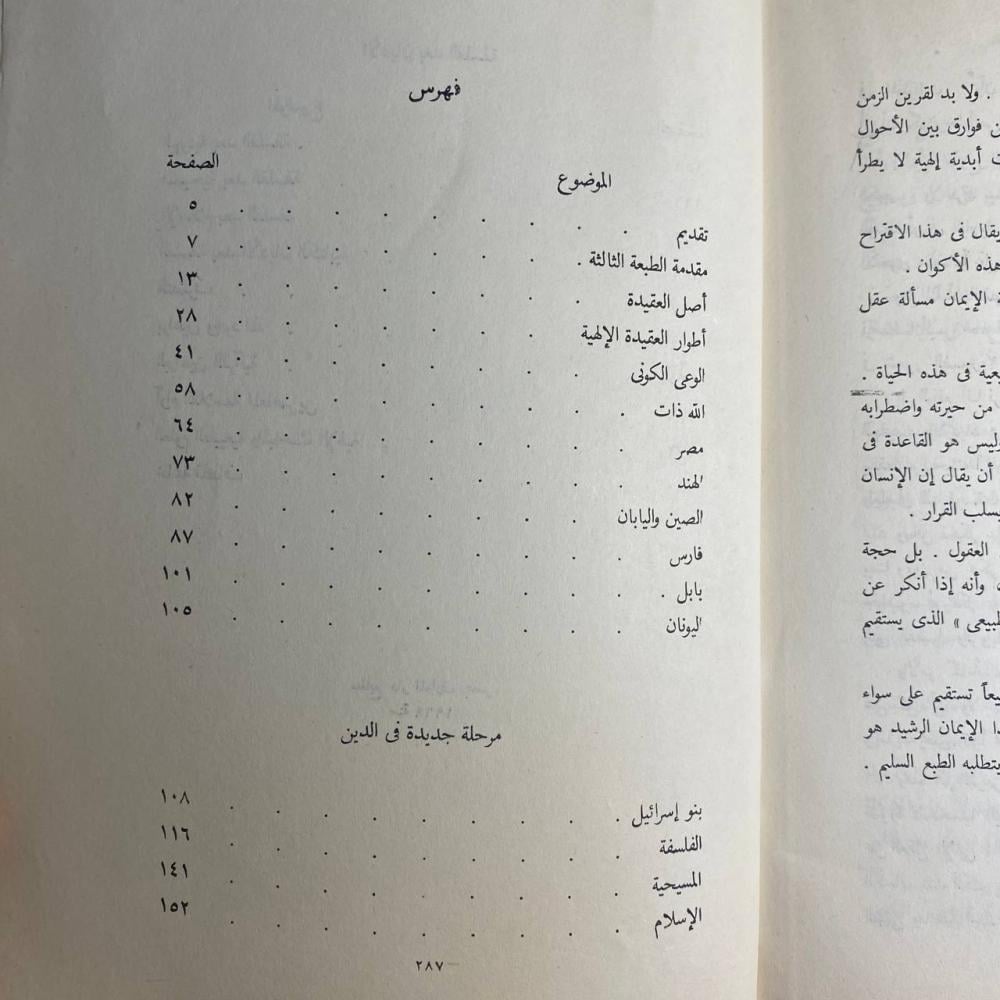 . ولا بد لقرين الزمن
فوارق بين الأحوال
أبدية إلهية لا يطرأ
يقال فى هذا الاقتراح
هذه الأكوان .
الإيمان مسألة عقل
فى هذه الحياة .
من حيرته واضطرابه
وليس هو القاعدة فى
أن يقال إن الإنسان
القرار .
العقول . بل حجة
وأنه إذا أنكر عن
الذى يستقيم
تستقيم على سواء
الإيمان الرشيد هو
يتطلبه الطبع السليم .
فهرس
الموضوع الصفحة
تقديم ٥
مقدمة الطبعة الثالثة ٧
أصل العقيدة ١٣
أطوار العقيدة الإلهية ٢٨
الوعى الكونى ٤١
الله ذات ٥٨
مصر ٦٤
الهند ٧٣
الصين واليابان ٨٢
فارس ٨٧
بابل ١٠١
اليونان ١٠٥
مرحلة جديدة فى الدين
بنو إسرائيل ١٠٨
الفلسفة ١١٦
المسيحية ١٤١
الإسلام ١٥٢
٢٨٧